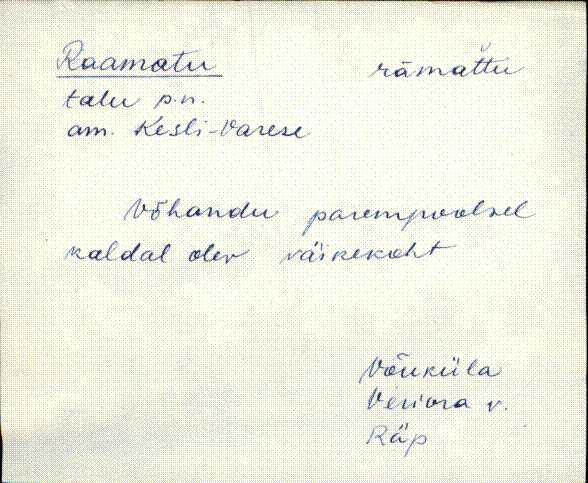 Raamatu rāmat̆tu
talu p.n.
am. Kesli-Varese
Võhandu parempoolsel
kaldal olev väikekoht
Võuküla
Veriora v.
Räp